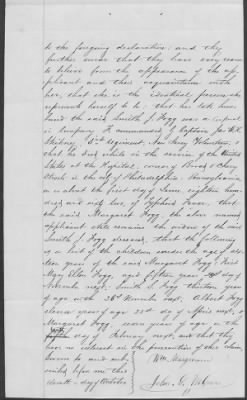 to the foregoing declaration: and they
further swear that they have every reason
to believe from the appearance of the ap-
plicant and their acquaintance with
her, that she is the identical person she
represents herself to be: that her late hus-
band the said Smith J. Fogg was a
in Company F. commanded by Captain
Stickney, 3rd Regiment, New Jersey Volunteers,
that he died while in the service of the United
States at the Hospital, corner of Broad &
Streets in the city of Philadelphia Pennsylvania
on or about the first day of June, eighteen hun-
dred and sixty two, of Typhoid Fever. that
the said Margaret Fogg, the above named
applicant still remains the widow of the said
Smith J. Fogg deceased, that the following
is a list of the children under the age of six-
teen years of the said Margaret Fogg:
Mary Ellen Fogg, aged fifteen years day of
November next, Smith S. Fogg thirteen
years of age on the 26th November next, Albert Fogg
eleven years of age 22nd day of April next,
Margaret Fogg, years of age on the
day of February next, and that they
have no interest in the prosecution of this claim
Sworn to and sub- Wm.
scribed before me this
day of October John G.